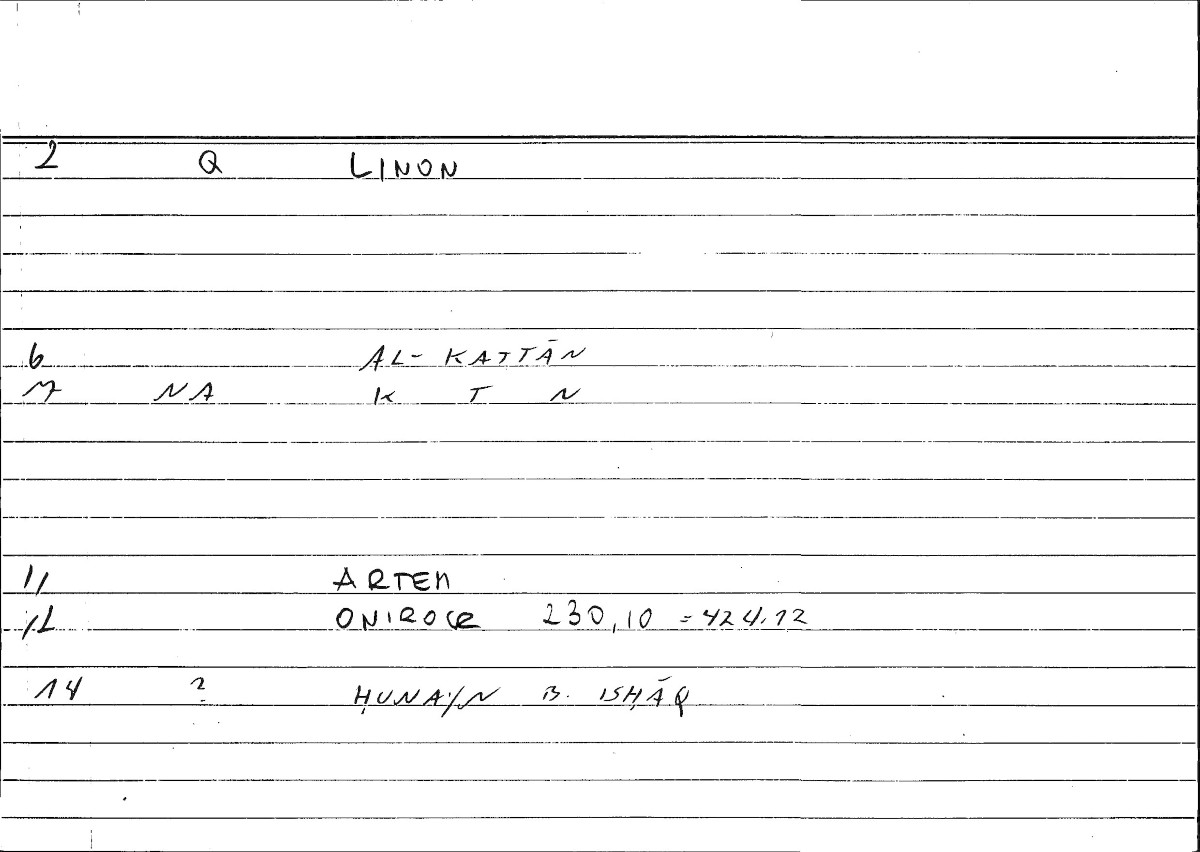 2 Q LINON
6 AL- KATTĀN
7 NA K T N
11 ARTEM
12 ONIROCR 230,10 = 424.12
14 ? ḤUNAYN B. ISḤĀQ